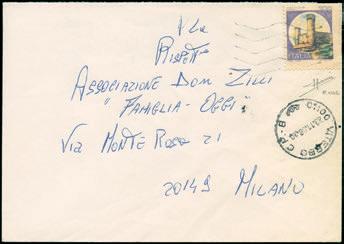 Alla
Rispett.
Associazione Don Zilli
"Famiglia-Oggi"
Via Monte Rosa 21
20149 Milano
ITALIA
01100 VITERBO C.P. - B